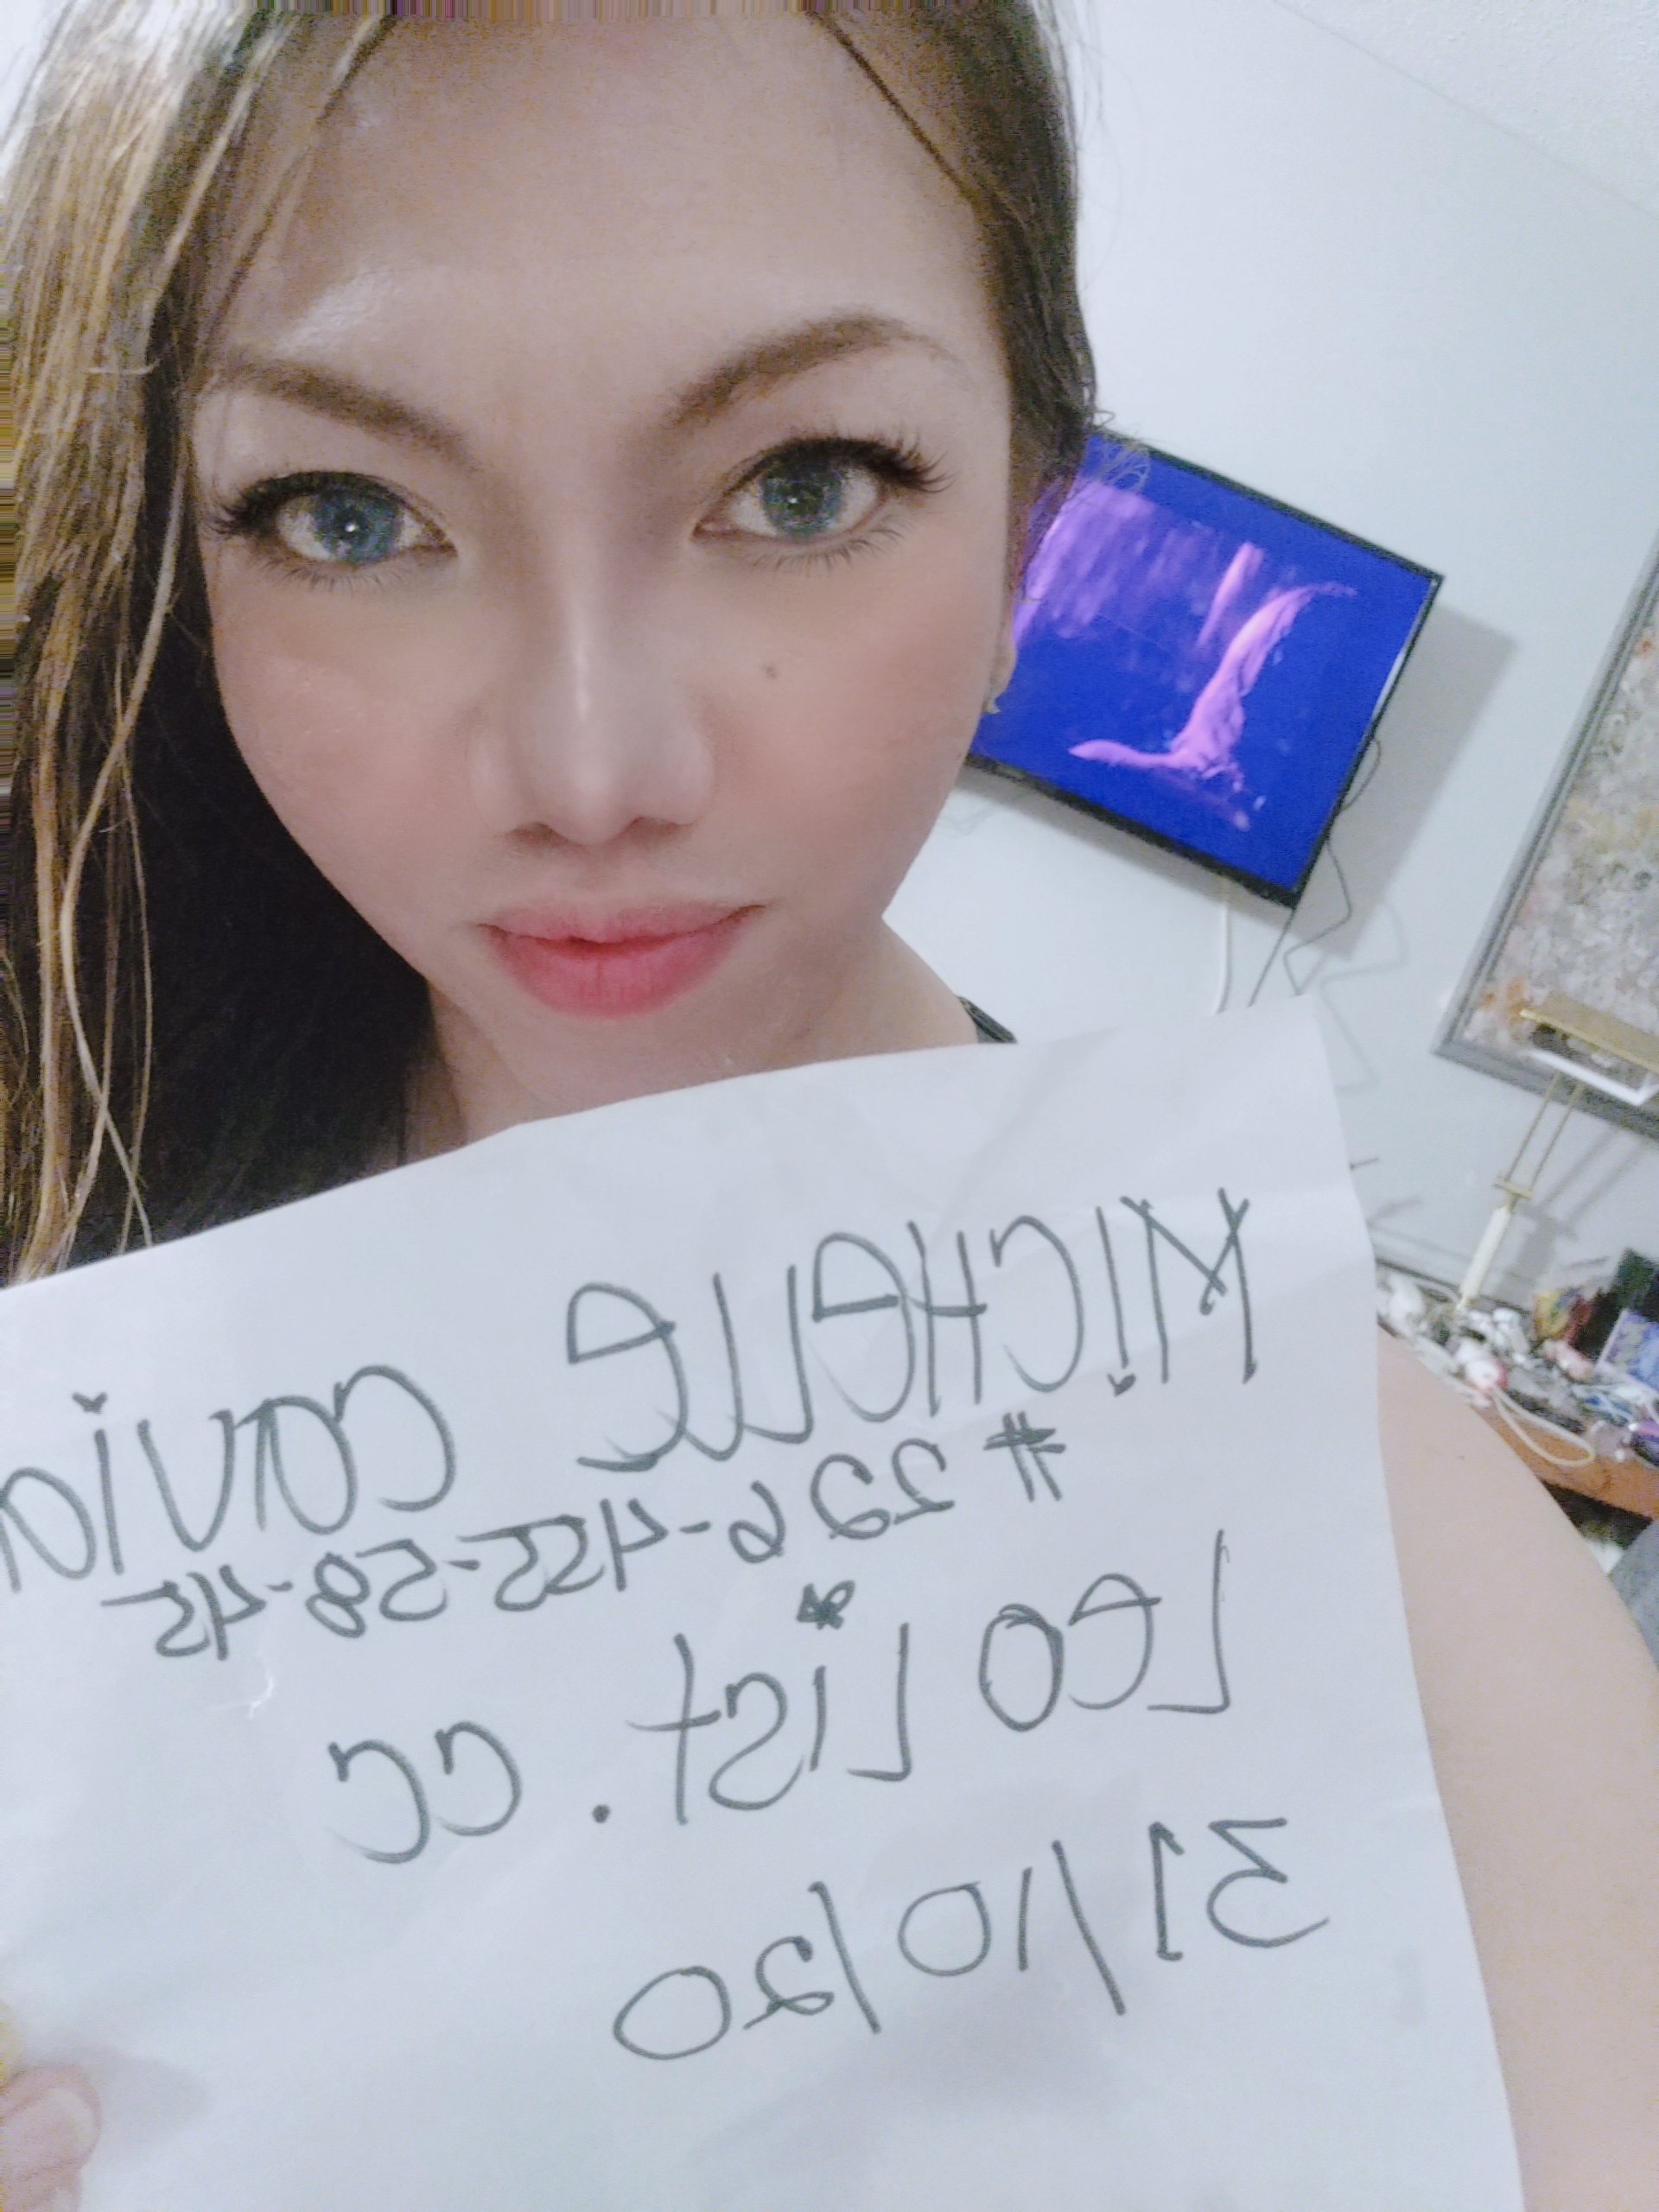 MICHELLE CAVIA
# 226-455-58-45
LEO LIST. CC
31/10/20